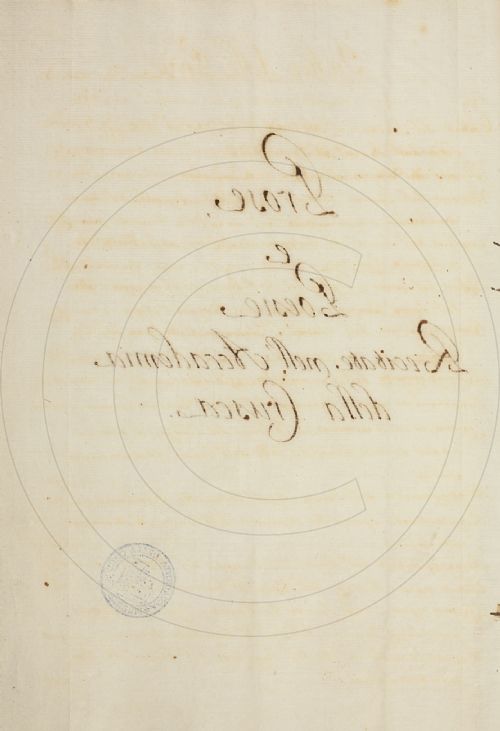 Prose
e
Poesie
Recitate nell'Accademia
della Crusca.